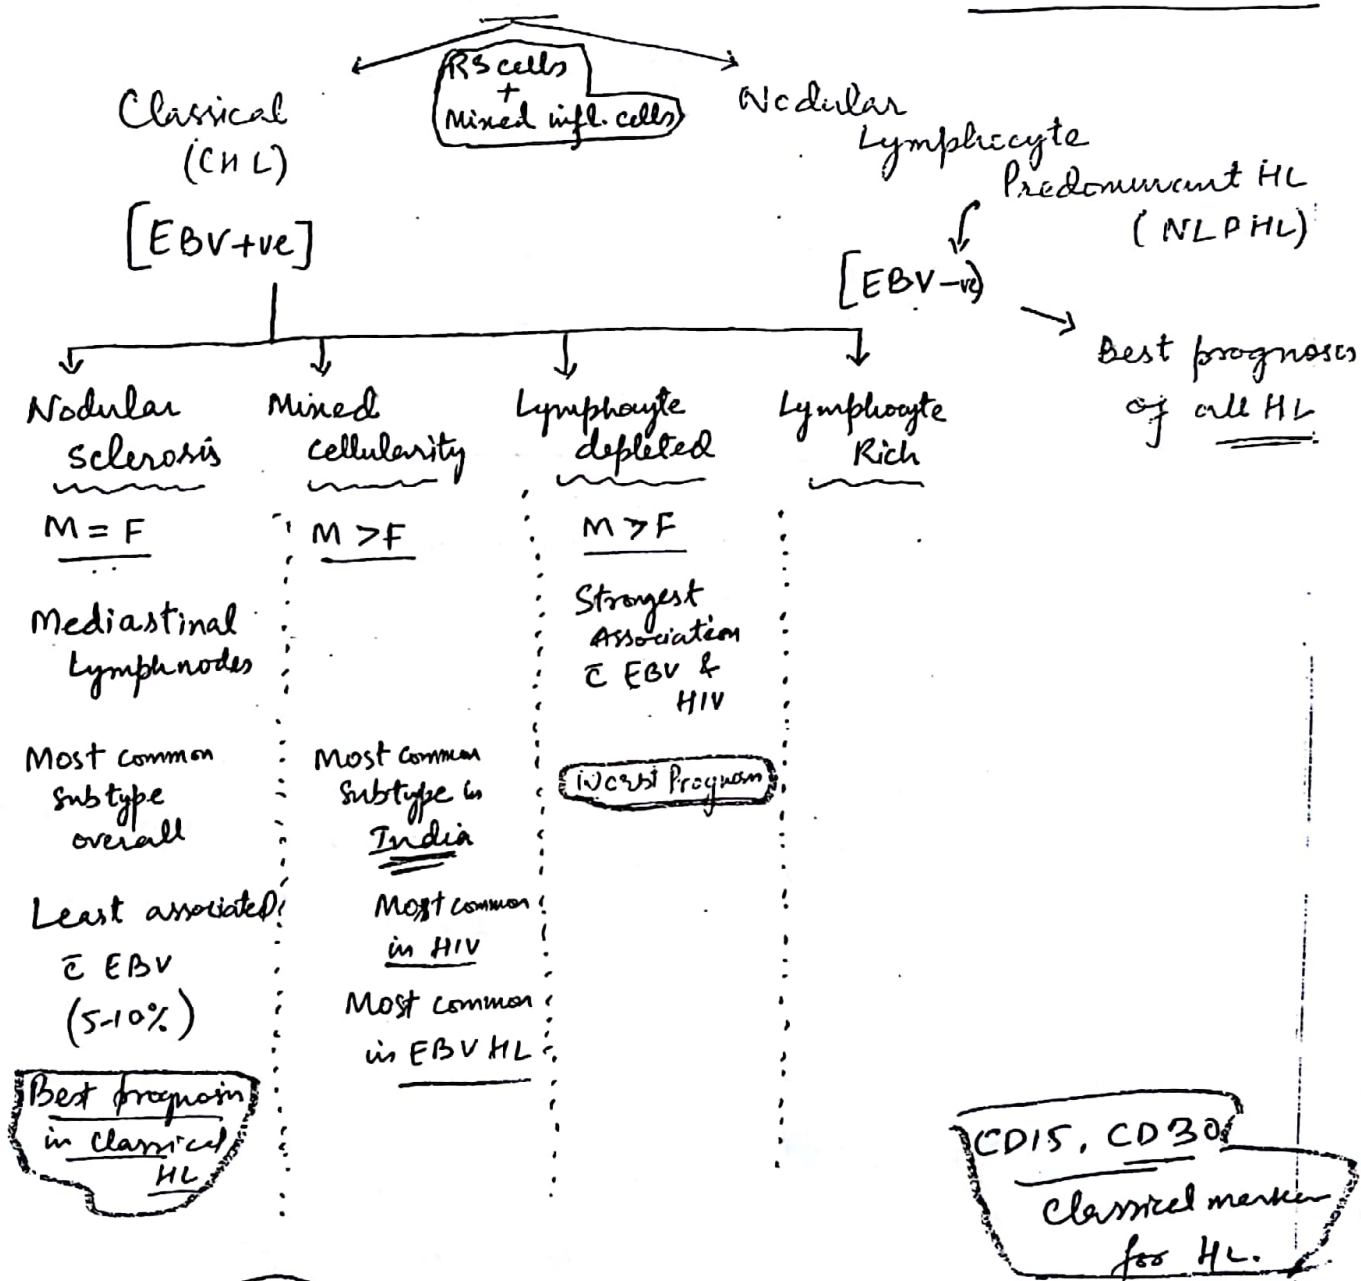 RS cells
+
Mixed infl. cells
Classical
(CHL)
[EBV+ve]
Nodular
Lymphocyte
Predominant HL
(NLPHL)
[EBV-ve)
Best prognosis
of all HL
Nodular
sclerosis
M = F
Mediastinal
Lymphnodes
Most common
subtype
overall
Least associated
c̄ EBV
(5-10%)
Best prognosis
in classical
HL
Mixed
cellularity
M >F
Most common
Subtype in
India
Most common
in HIV
Most common
in EBV HL
Lymphocyte
depleted
M > F
Strongest
Association
c̄ EBV &
HIV
Worst Prognosis
Lymphocyte
Rich
CD15, CD30
Classical marker
for HL.